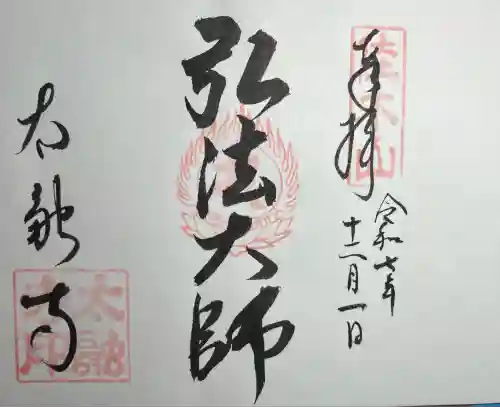 奉拝
令和七年
十二月一日
弘法大師
太融寺